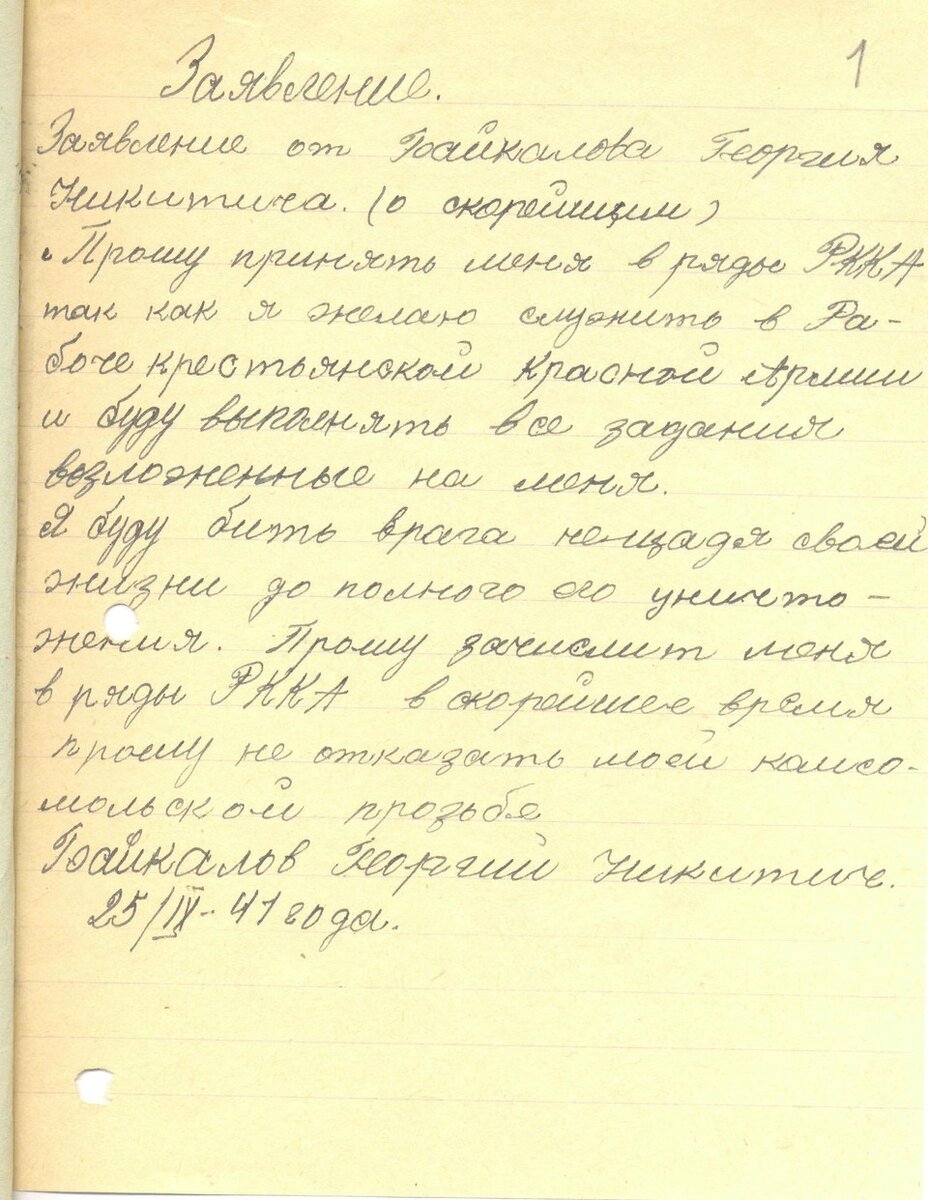 1
Заявление.
Заявление от Байкалова Георгия
Никитича. (о скорейищим)
Прошу принять меня в ряды РККА
так как я желаю служить в Ра-
боче крестьянской Красной Армии
и буду выполнять все задания
возложенные на меня.
Я буду бить врага нещадя своей
жизни до полного его уничто-
жения. Прошу зачислит меня
в ряды РККА в скорейшее время
прошу не отказать моей комсо-
мольской прозьбе
Байкалов Георгий Никитич.
25/IX-41 года.